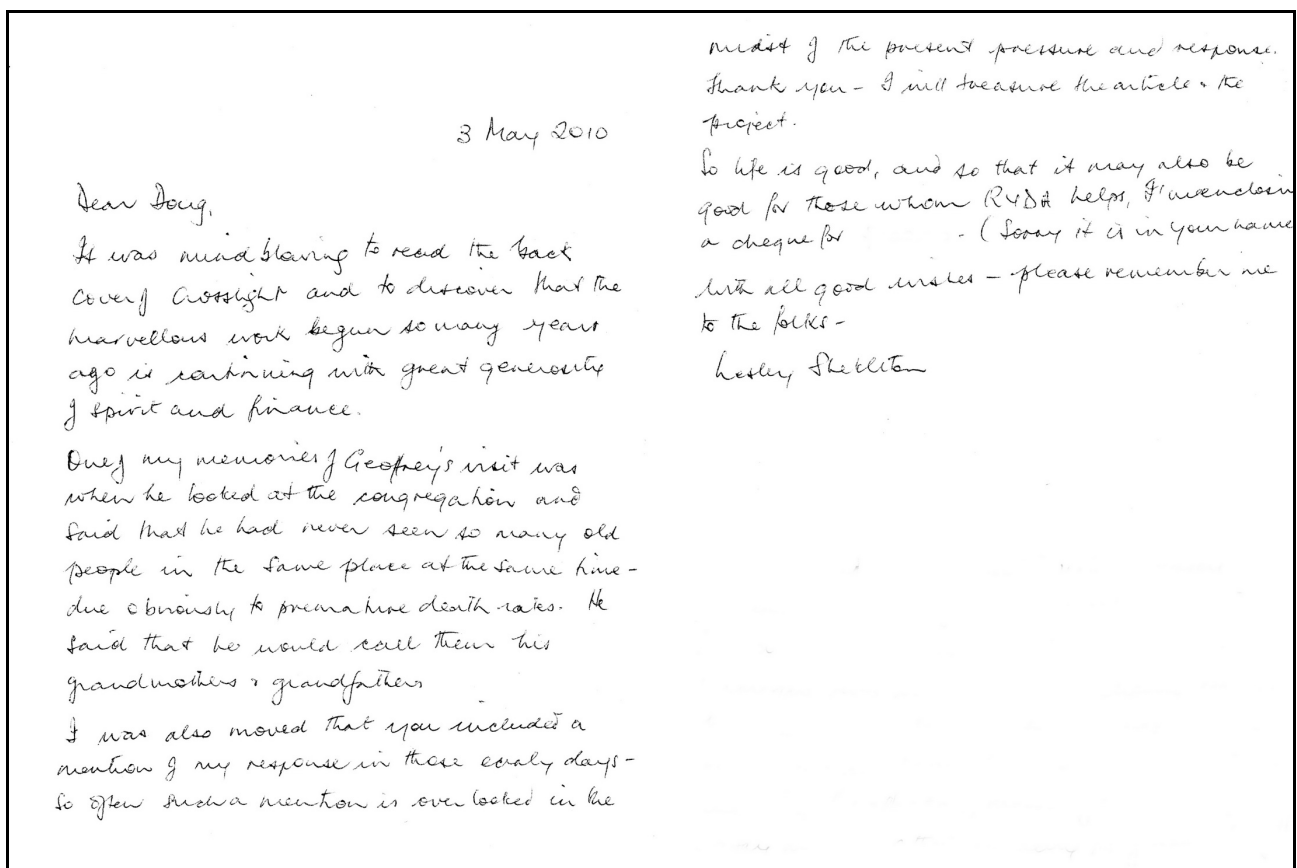 3 May 2010
Dear Doug,
It was mind blowing to read the back
cover of Crosslight and to discover that the
marvellous work begun so many years
ago is continuing with great generosity
of spirit and finance.
One of my memories of Geoffrey's visit was
when he looked at the congregation and
said that he had never seen so many old
people in the same place at the same time -
due obviously to premature death rates. He
said that he would call them his
grandmothers & grandfathers
I was also moved that you included a
mention of my response in those early days -
So often such a mention is overlooked in the
midst of the present pressure and response.
Thank you - I will treasure the article & the
project.
So life is good, and so that it may also be
good for those whom RVDA helps, I'm enclosin
a cheque for - (Sorry it is in your name
With all good wishes - please remember me
to the folks -
Lesley